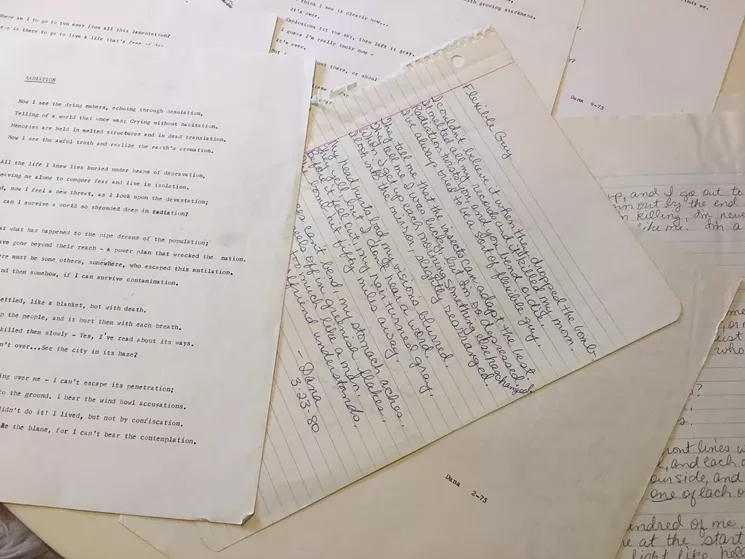 where am I to go to run away from all this lamentation?
is there to go to live a life that's free of
think I see is clearly now...
It's over.
Explosions lit the sky, then left it gray.
I guess I'm really their now -
It's over,
out there, or about
with growing starkness.
this we.
Dana 9-75
RADIATION
Now I see the dying embers, echoing through desolation,
Telling of a world that once was; Crying without habitation.
Memories are held in melted structures and in dead translation.
Now I see the awful truth and realize the earth's cremation.
All the life I knew lies buried under heaps of depravation,
leaving me alone to conquer fear and live in isolation.
and, now I feel a new threat, as I look upon the devastation;
can I survive a world so shrouded deep in radiation?
what has happened to the pipe dreams of the population;
gone beyond their reach - a power plan that wrecked the nation.
There must be some others, somewhere, who escaped this mutilation.
and then somehow, if I can survive contamination.
settled, like a blanket, but with death.
the people, and it hurt them with each breath.
killed them slowly - Yes, I've read about its ways.
over...See the city in its haze?
over me - I can't escape its penetration;
to the ground. I hear the wind howl accusations.
didn't do it! I lived, but not by confiscation.
me the blame, for I can't bear the contemplation.
Flexible Guy
I couldn't believe it when they dropped the bomb
It melted all my records and it killed my mom.
Radiation to the left, and you bend aside.
I've always tried to be a sort of flexible guy.
They tell me that the insects can adapt the best.
They tell me I was lucky but I'm so depressed.
I get up each morning something else has changed.
I look into the mirror slightly rearranged.
My head hurts bad my visions blurred.
you yell at me I don't hear a word.
fell out, my hair turned gray.
bomb hit fifty miles away.
can't bend, my stomach aches.
peels off in greenish flakes.
too much like a man.
friend understands.
- Dana
3-23-80
Dana 2-75
up, and I go out to
out by the end
killing, I'm new
like me. I'm a
front lines
and each
our side, and
one of each
hundred of me.
me at the start
light like